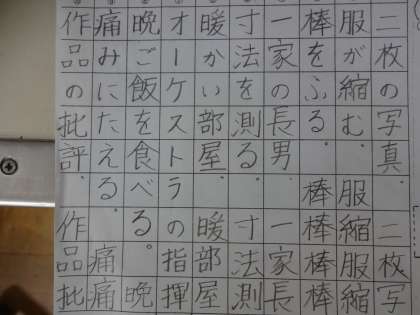 二枚の写真.二枚写
服が縮む.服縮服縮
棒をふる.棒棒棒棒
一家の長男.一家長
寸法を測る.寸法測
暖かい部屋.暖部屋
オーケストラの指揮
晩ご飯を食べる。晩
痛みにたえる.痛痛
作品の批評.作品批